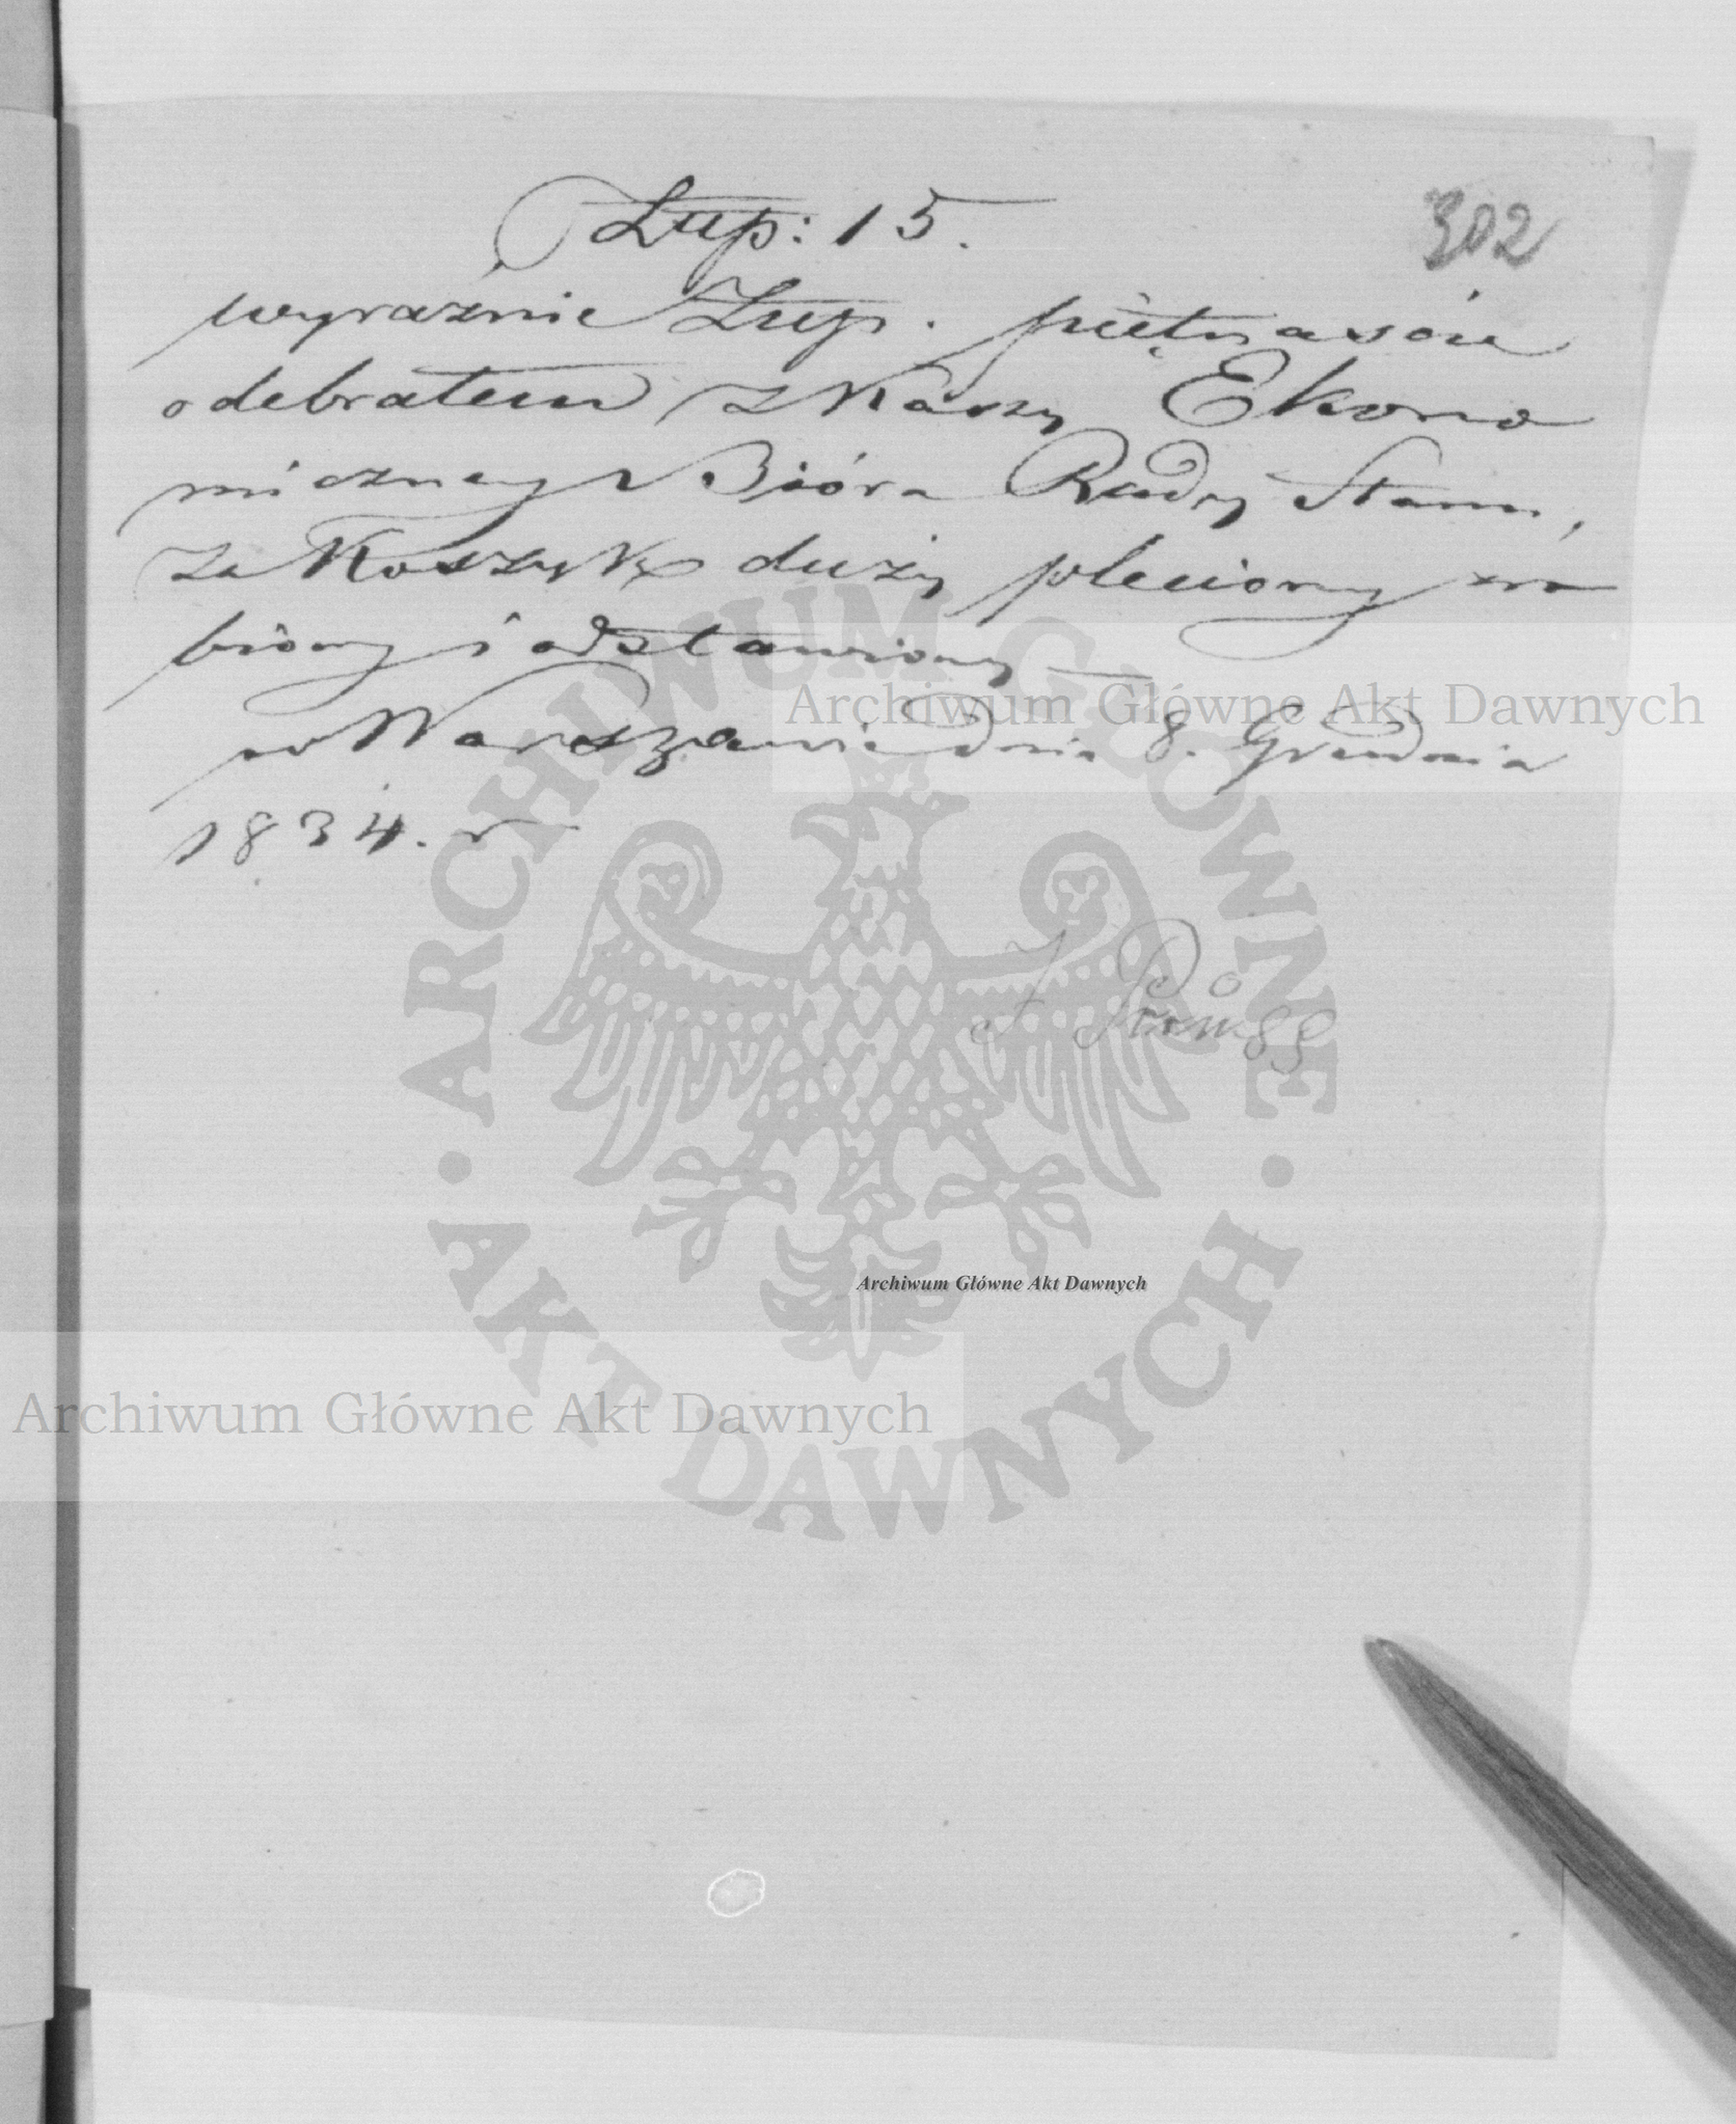 302
Złup: 15.
wyraznie Złup. piętnascie
odebrałem z Kassy Ekono
miczney Bióra Rady Stanu,
za Koszyk duży pleciony zro
biony i odstawiony —
w Warszawie dnia 8. Grudnia
1834. r
Archiwum Główne Akt Dawnych
ARCHIWUM GŁÓWNE • AKT DAWNYCH •
Archiwum Główne Akt Dawnych
Archiwum Główne Akt Dawnych